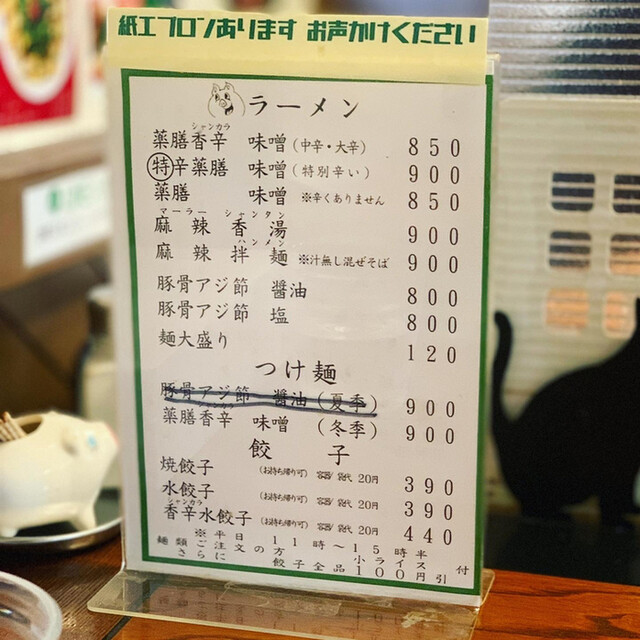 紙エプロンあります お声かけください
ラーメン
シャンカラ
薬膳香辛 味噌(中辛・大辛) 850
特辛薬膳 味噌(特別辛い) 900
薬膳 味噌 ※辛くありません 850
マーラー シャンタン
麻辣香湯 900
ハンメン
麻辣拌麺 ※汁無し混ぜそば 900
豚骨アジ節 醬油 800
豚骨アジ節 塩 800
麺大盛り 120
つけ麺
豚骨アジ節 醬油(夏季) 900
シャンカラ
薬膳香辛 味噌(冬季) 900
餃子
焼餃子 (お持ち帰り可) 容器/袋代 20円 390
水餃子 (お持ち帰り可) 容器/袋代 20円 390
シャンカラ
香辛水餃子 (お持ち帰り可) 容器/袋代 20円 440
※平日11時〜15時半
麺類ご注文の方 小ライス付
さらに 餃子全品100円引